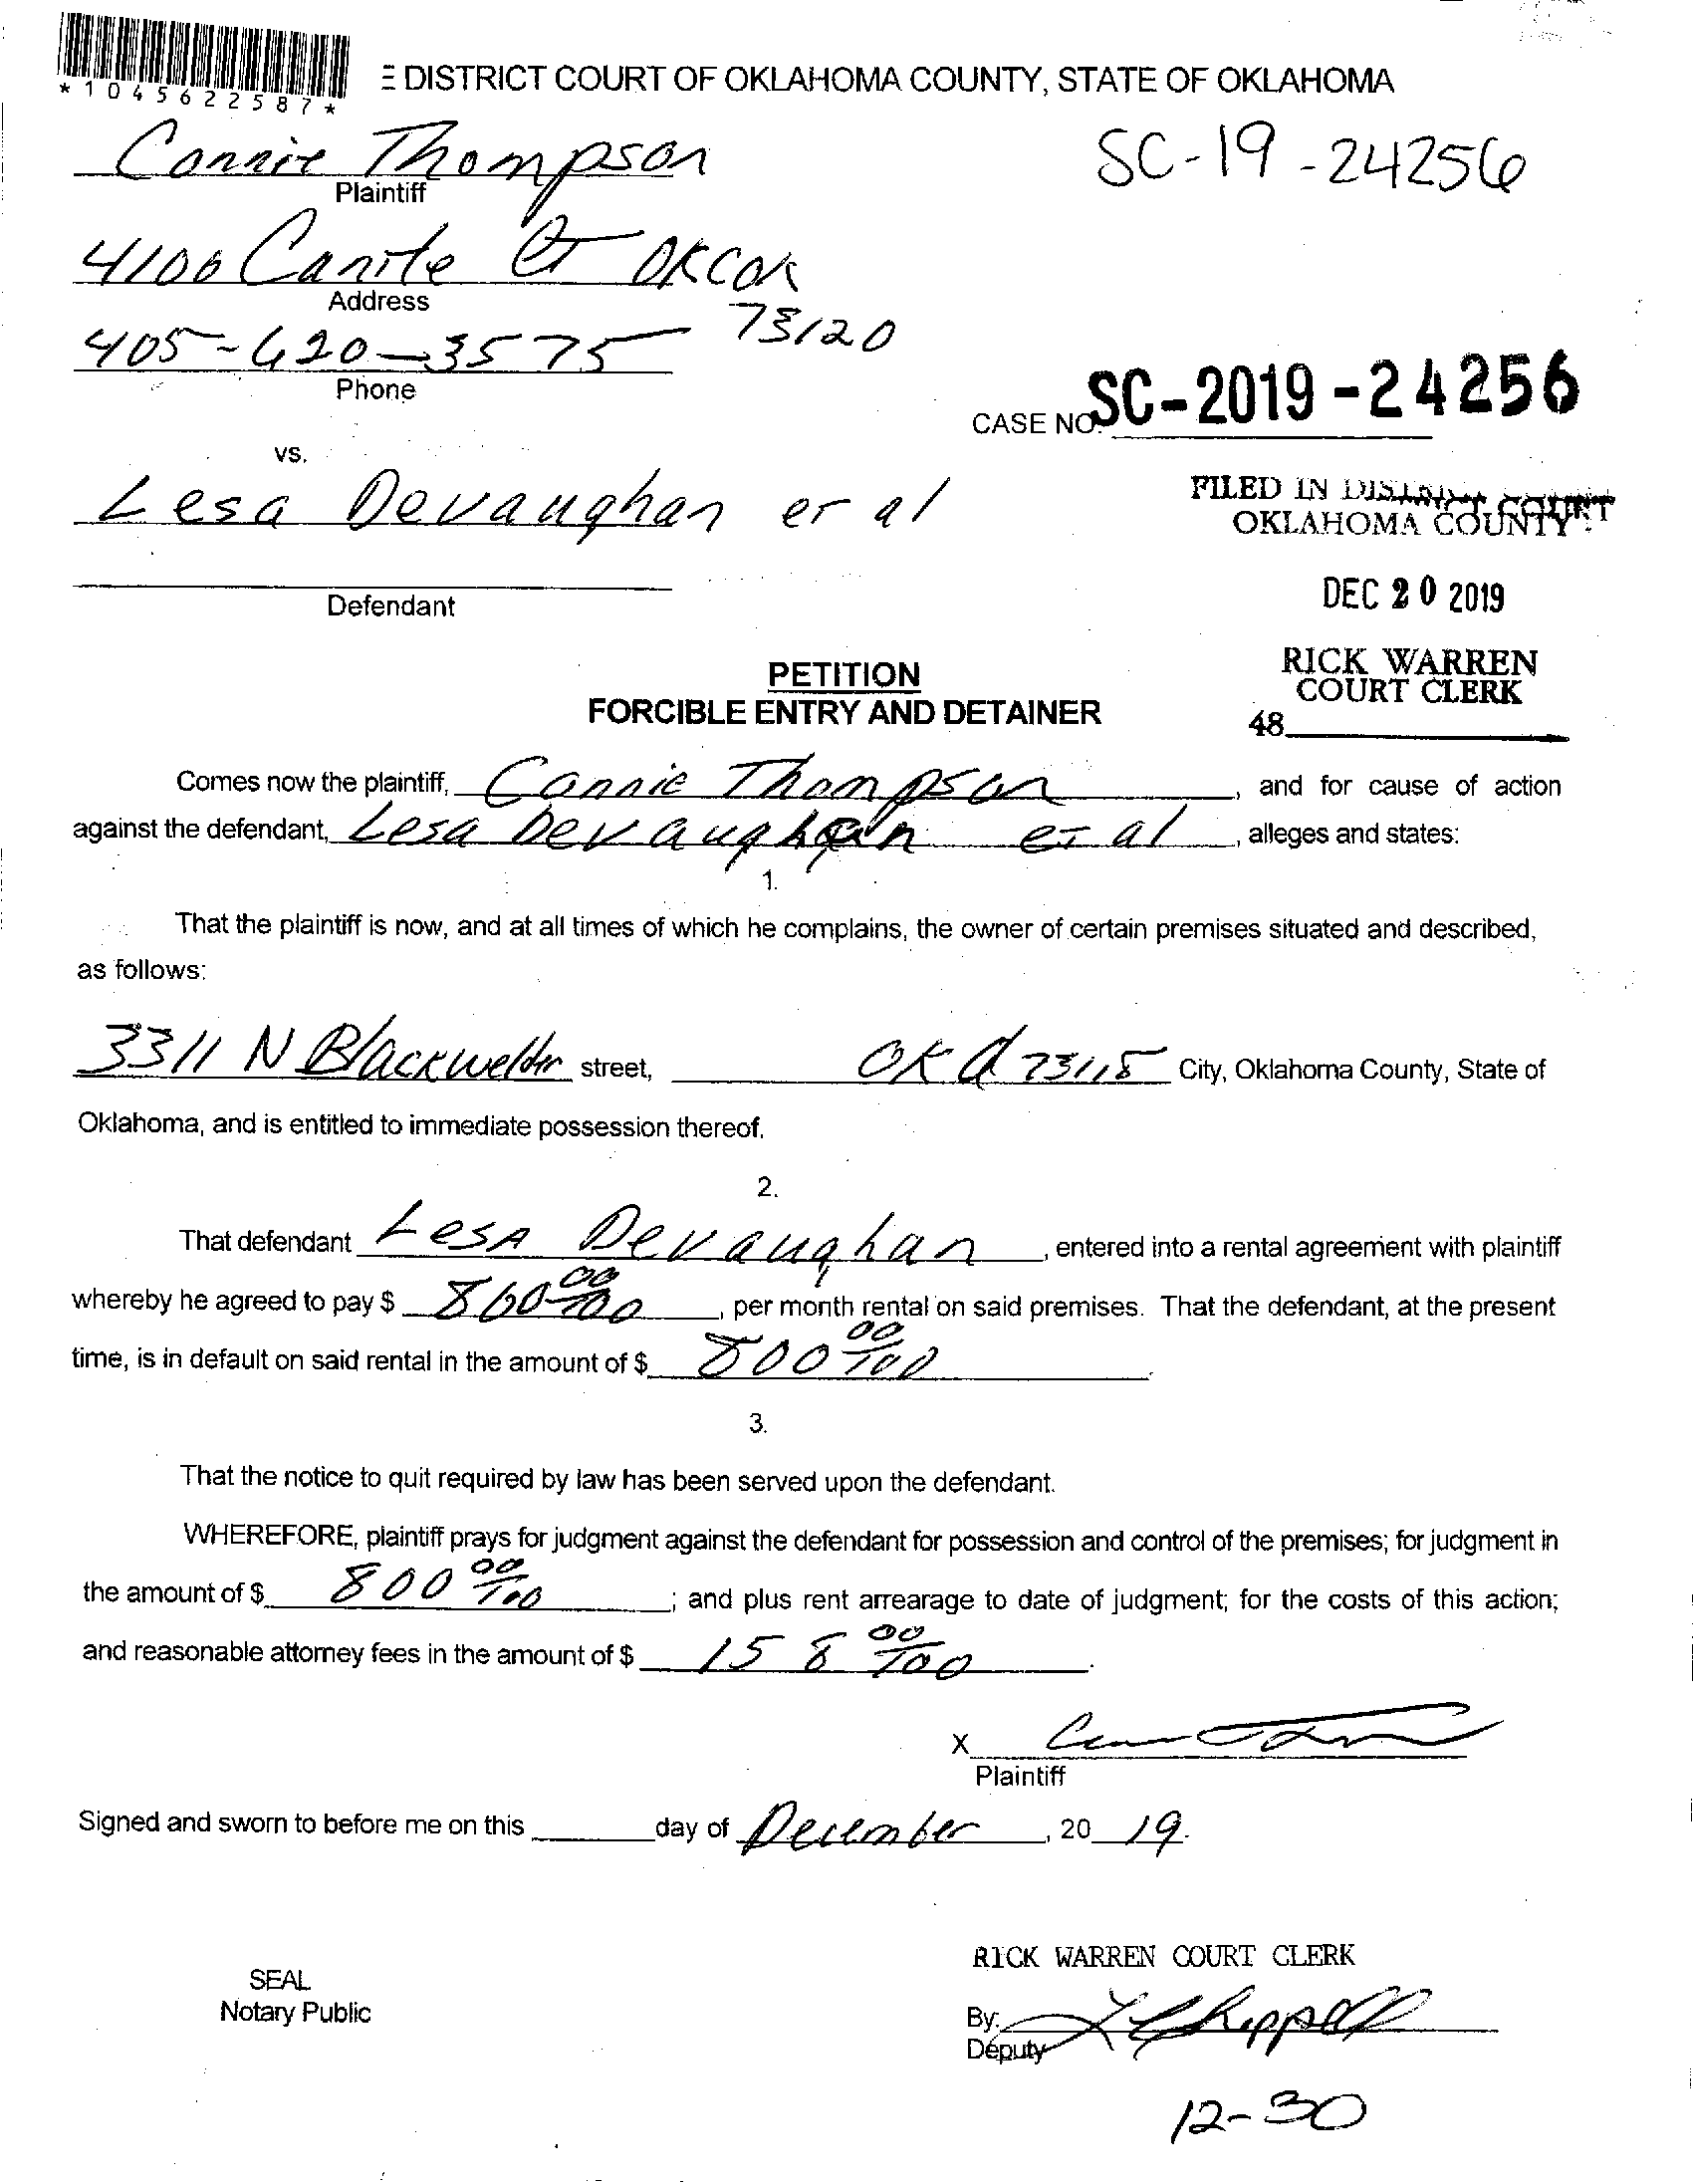 *1045622587*
E DISTRICT COURT OF OKLAHOMA COUNTY, STATE OF OKLAHOMA
Connie Thompson
Plaintiff
SC-19-24256
4100 Canite Ct OKCOK
Address
73120
405-620-3575
Phone
CASE NO. SC-2019-24256
vs.
Lesa Devaughan et al
Defendant
FILED IN DISTRICT COURT
OKLAHOMA COUNTY
DEC 20 2019
RICK WARREN
COURT CLERK
48
PETITION
FORCIBLE ENTRY AND DETAINER
Comes now the plaintiff, Connie Thompson, and for cause of action
against the defendant, Lesa Devaughan et al, alleges and states:
1.
That the plaintiff is now, and at all times of which he complains, the owner of certain premises situated and described,
as follows:
3311 N Blackwelder street, OK 73118 City, Oklahoma County, State of
Oklahoma, and is entitled to immediate possession thereof.
2.
That defendant Lesa Devaughan, entered into a rental agreement with plaintiff
whereby he agreed to pay $ 860 00/100, per month rental on said premises. That the defendant, at the present
time, is in default on said rental in the amount of $ 800 00/100.
3.
That the notice to quit required by law has been served upon the defendant.
WHEREFORE, plaintiff prays for judgment against the defendant for possession and control of the premises; for judgment in
the amount of $ 800 00/100; and plus rent arrearage to date of judgment; for the costs of this action;
and reasonable attorney fees in the amount of $ 158 00/100.
X
Plaintiff
Signed and sworn to before me on this day of December, 20 19.
RICK WARREN COURT CLERK
SEAL
Notary Public
By:
Deputy
12-30